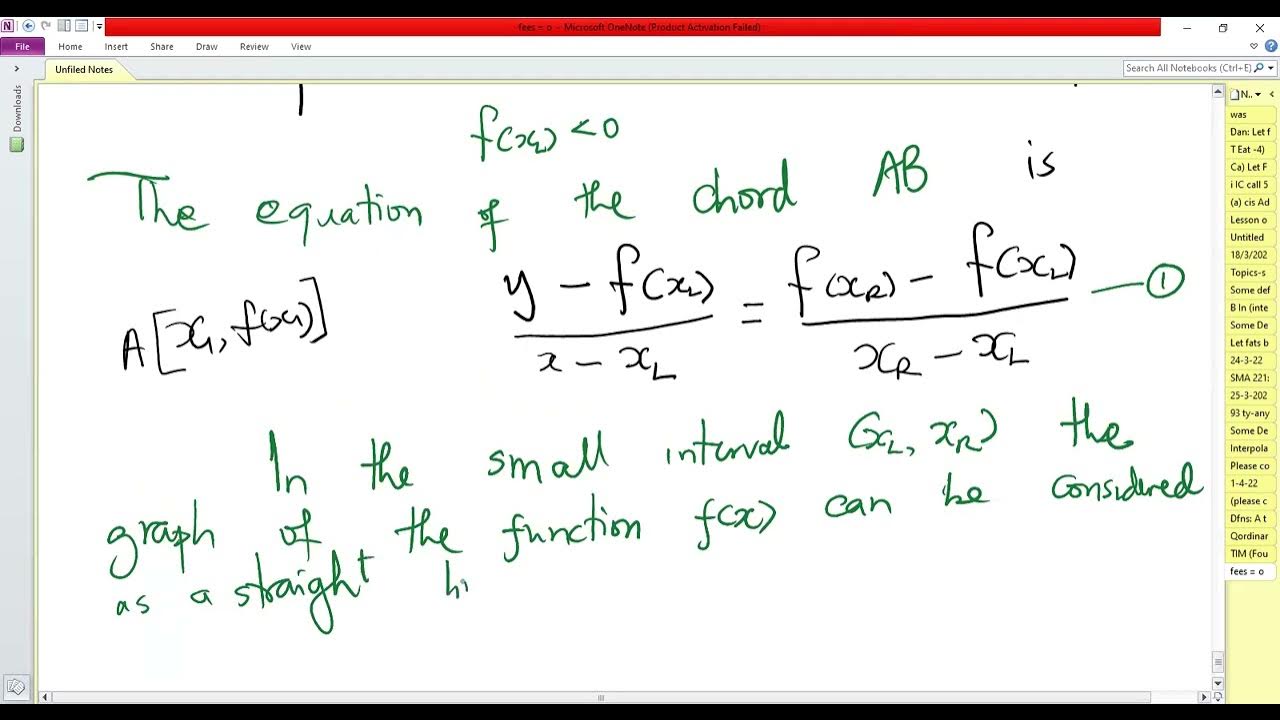 fees = o - Microsoft OneNote (Product Activation Failed)
File Home Insert Share Draw Review View
Unfiled Notes
Search All Notebooks (Ctrl+E)
Downloads
f(x_L) < 0
The equation of the chord AB is
A[x_1, f(x_1)] (y - f(x_L))/(x - x_L) = (f(x_R) - f(x_L))/(x_R - x_L) — ①
In the small interval (x_L, x_R) the
graph of the function f(x) can be considered
as a straight li
N..
was
Dan: Let f
T Eat -4)
Ca) Let F
i IC call 5
(a) cis Ad
Lesson o
Untitled
18/3/202
Topics-s
Some def
B In (inte
Some De
Let fats b
24-3-22
SMA 221:
25-3-202
93 ty-any
Some De
Interpola
Please co
1-4-22
(please c
Dfns: A t
Qordinar
TIM (Fou
fees = o